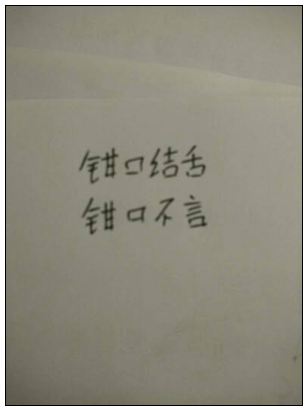 钳口结舌
钳口不言